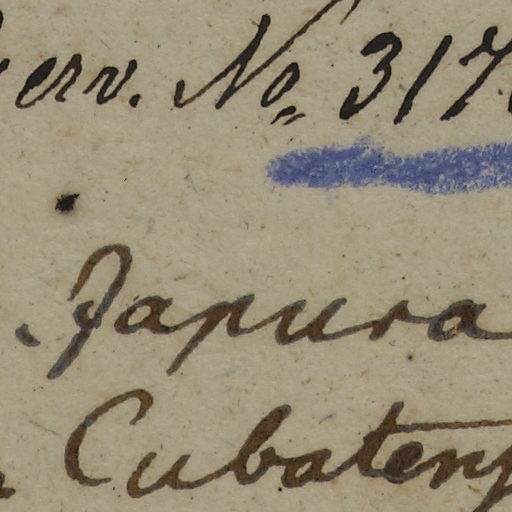 erv. No. 317
Japura
Cubaten